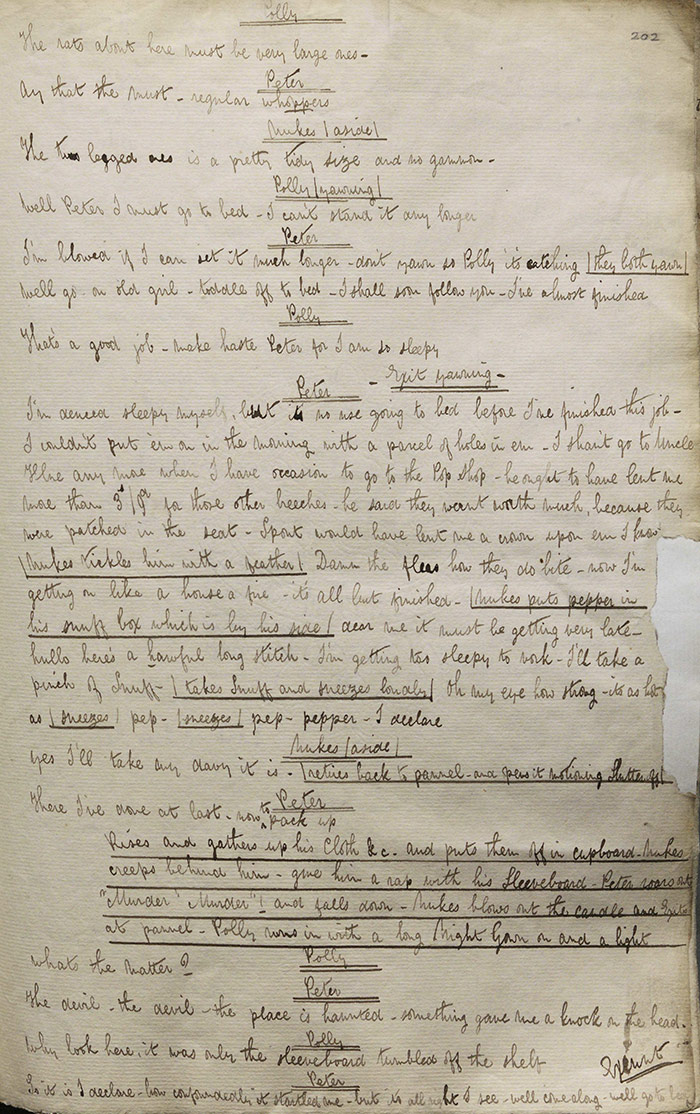 Polly
202
The rats about here must be very large ones -
Peter
Ay that the must - regular whoppers
Nukes | aside |
The two legged ones is a pretty tidy size and no gammon -
Polly | yawning |
Well Peter I must go to bed - I can't stand it any longer
Peter
I'm blowed if I can set it much longer - don't yawn so Polly it's catching | they both yawn |
Well go on old girl - toddle off to bed - I shall soon follow you - I've almost finished
Polly
That's a good job - make haste Peter for I am so sleepy
- Exit yawning -
Peter
I'm deuced sleepy myself, but its no use going to bed before I've finished this job -
I couldn't put 'em on in the morning with a parcel of holes in em - I shan't go to Uncle
any more when I have occasion to go to the Pop Shop - he ought to have lent me
more than 3s/9d for those other beeches - he said they wernt worth much, because they
were patched in the seat - Spout would have lent me a crown upon em I know
| Nukes tickles him with a feather | Damn the fleas how they do bite - now I'm
getting on like a house a fire - it's all but finished - | Nukes puts pepper in
his snuff box which is by his side | dear me it must be getting very late -
hullo here's a hawful long stitch - I'm getting too sleepy to work - I'll take a
pinch of Snuff - | takes Snuff and sneezes loudly | Oh my eye how strong - its as hot
as | sneezes | pep - | sneezes | pep - pepper - I declare
Nukes | aside |
yes I'll take my davy it is - | retires back to pannel - and opens it motioning
Peter
There I've done at last - now to pack up
Rises and gathers up his Cloth &c. and puts them off in cupboard - Nukes
creeps behind him - gives him a rap with his Sleeveboard - Peter roars out
"Murder! Murder"! and falls down - Nukes blows out the candle and Exits
at pannel - Polly runs in with a long Night Gown on and a light
Polly
Whats the matter?
Peter
The devil - the devil - the place is haunted - something gave me a knock on the head -
Polly
Why look here, it was only the sleeveboard tumbled off the shelf
Exeunt
Peter
So it is I declare - how confoundedly it startled me - but its all right I see - well come along - we'll go to bed